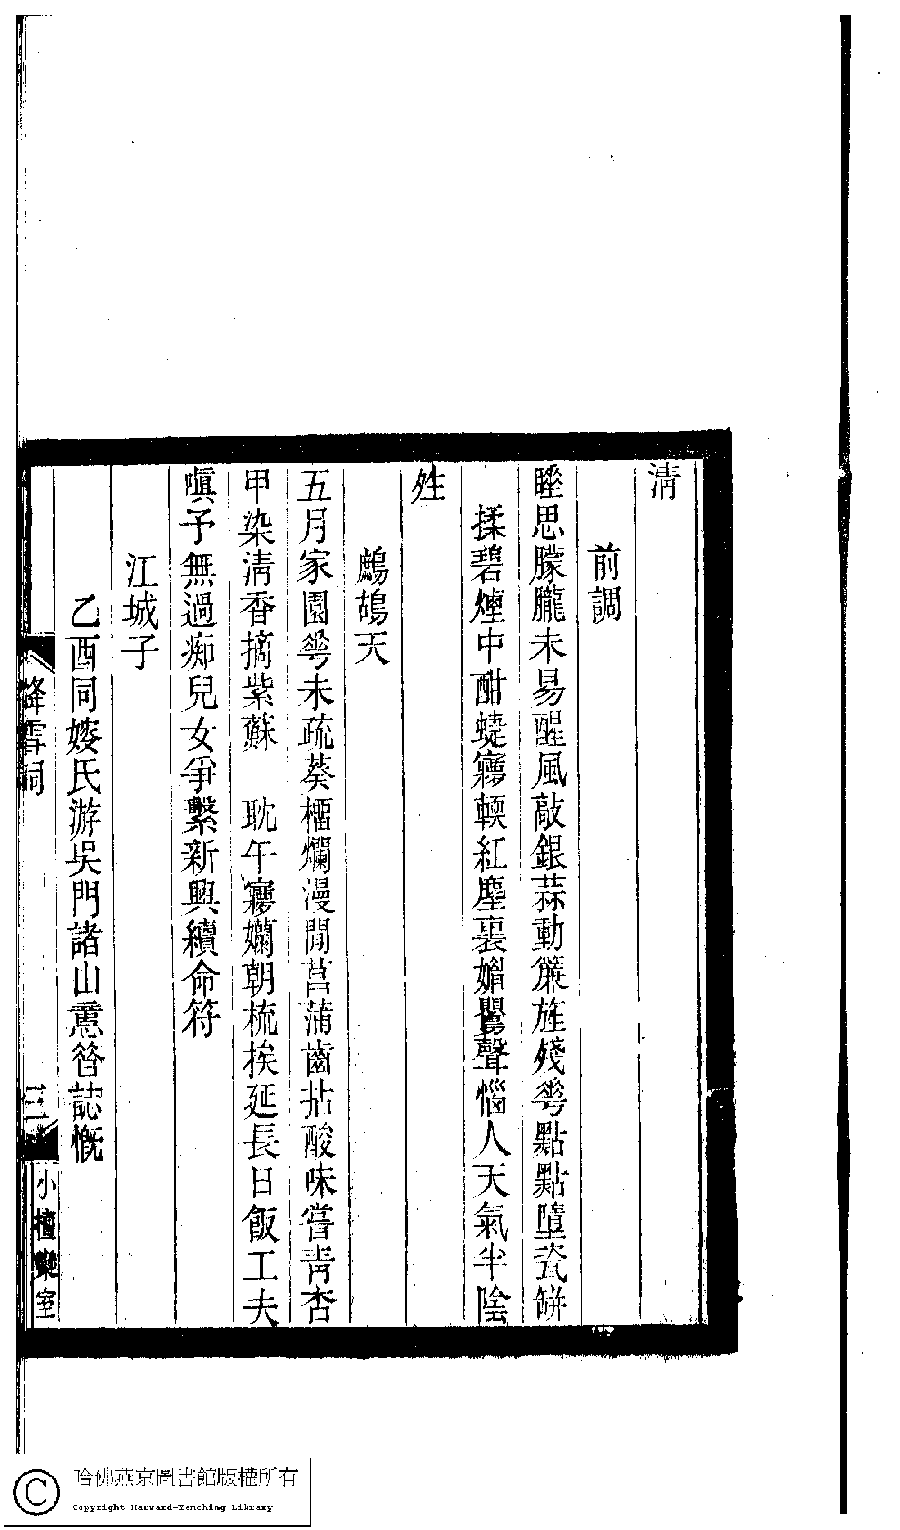 清
前調
睡思朦朧未易醒風敲銀蒜動簾旌殘蕚點點墮瓷缾
揉碧煙中酣蜨㝱輭紅塵裏媚鶯聲惱人天氣半陰
夝
鷓鴣天
五月家園蕚未疏葵榴爛漫間菖蒲齒拈酸味嘗靑杏
甲染淸香摘紫蘇　耽午㝱嬾朝梳挨延長日飯工夫
嗔予無過痴兒女爭繫新興續命符
江城子
乙酉同婑氏游吳門諸山熏㗖誌慨
絳雪詞
三
小檀欒室
哈佛燕京圖書館版權所有
Copyright Harvard-Yenching Library